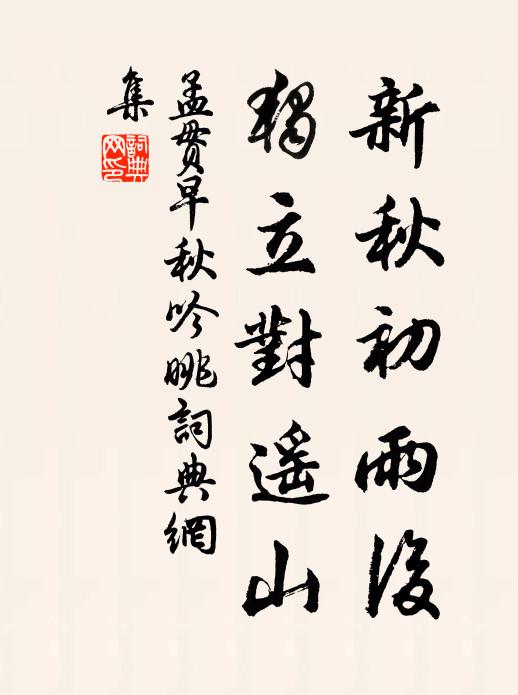 新秋初雨後
獨立對遥山
孟貫早秋吟眺詞典網
集
詞典
网印